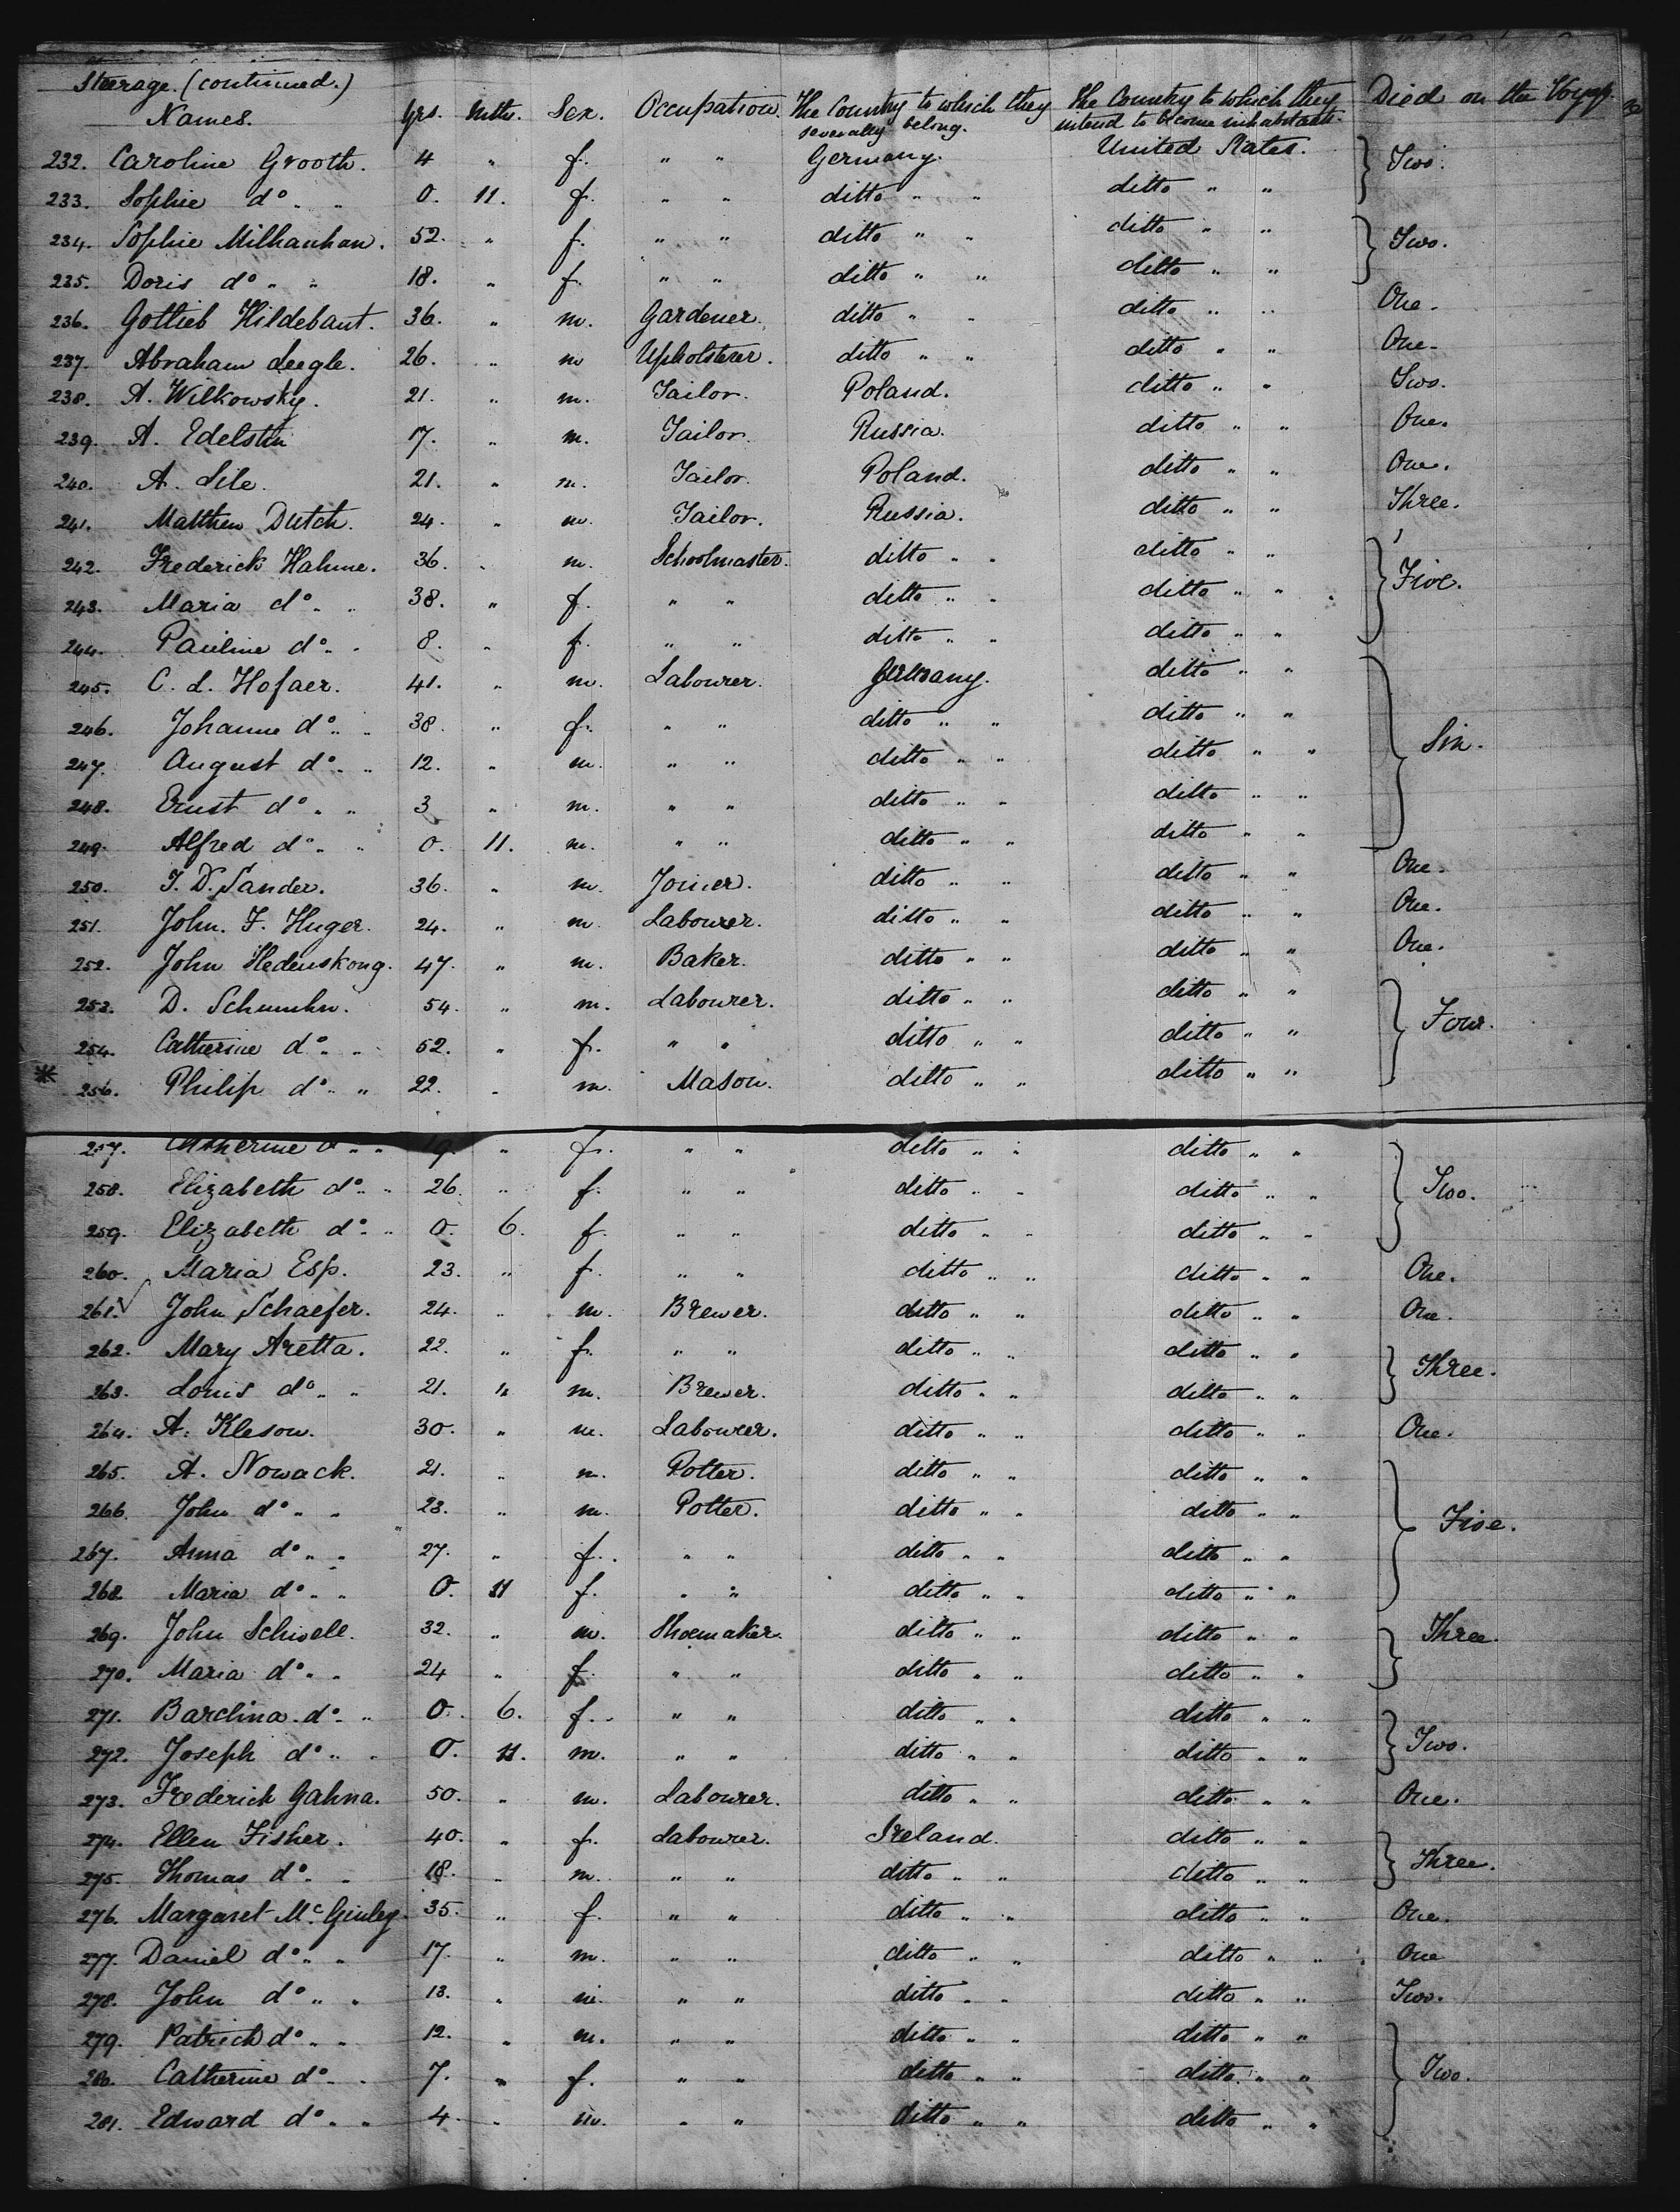 Steerage. (continued.)
Names. Yrs. Mths. Sex. Occupation. The Country to which they severally belong. The Country to which they intend to become inhabitants. Died on the Voyage.
232. Caroline Grooth. 4 " f. " " Germany. United States. } Two.
233. Sophie do " " 0. 11. f. " " ditto " " ditto " "
234. Sophie Milhauhan. 52. " f. " " ditto " " ditto " " } Two.
235. Doris do " " 18. " f. " " ditto " " ditto " "
236. Gottlieb Hildebant. 36. " m. Gardener. ditto " " ditto " " One.
237. Abraham Leegle. 26. " m Upholsterer. ditto " " ditto " " One.
238. A. Wilkowsky. 21. " m. Tailor. Poland. ditto " " Two.
239. A. Edelstin 17. " m. Tailor. Russia. ditto " " One.
240. A. Lile. 21. " m. Tailor. Poland. ditto " " One.
241. Matthew Dutch. 24. " m. Tailor. Russia. ditto " " Three.
242. Frederick Hahme. 36. " m. Schoolmaster. ditto " " ditto " " } Five.
243. Maria do " " 38. " f. " " ditto " " ditto " "
244. Pauline do " " 8. " f. " " ditto " " ditto " "
245. C. L. Hofaer. 41. " m. Labourer. Germany. ditto " "
246. Johanne do " " 38. " f. " " ditto " " ditto " " } Six.
247. August do " " 12. " m. " " ditto " " ditto " "
248. Ernst do " " 3 " m. " " ditto " " ditto " "
249. Alfred do " " 0. 11. m. " " ditto " " ditto " "
250. J. D. Sander. 36. " m. Joiner. ditto " " ditto " " One.
251. John. F. Huger. 24. " m. Labourer. ditto " " ditto " " One.
252. John Hedenskong. 47. " m. Baker. ditto " " ditto " " One.
253. D. Schumhn. 54. " m. Labourer. ditto " " ditto " " } Four.
254. Catherine do " " 52. " f. " " ditto " " ditto " "
* 256. Philip do " " 22. " m. Mason. ditto " " ditto " "
257. Catherine do " " 19. " f. " " ditto " " ditto " "
258. Elizabeth do " " 26. " f. " " ditto " " ditto " " } Two.
259. Elizabeth do " " 0. 6. f. " " ditto " " ditto " "
260. Maria Esp. 23. " f. " " ditto " " ditto " " One.
261. John Schaefer. 24. " m. Brewer. ditto " " ditto " " One.
262. Mary Aretta. 22. " f. " " ditto " " ditto " " } Three.
263. Louis do " " 21. " m. Brewer. ditto " " ditto " "
264. A. Kleson. 30. " m. Labourer. ditto " " ditto " " One.
265. A. Nowack. 21. " m. Potter. ditto " " ditto " "
266. John do " " 23. " m. Potter. ditto " " ditto " " } Five.
267. Anna do " " 27. " f. " " ditto " " ditto " "
268. Maria do " " 0. 11 f. " " ditto " " ditto " "
269. John Schwell. 32. " m. Shoemaker. ditto " " ditto " " } Three.
270. Maria do " " 24 " f. " " ditto " " ditto " "
271. Barclina do " " 0. 6. f. " " ditto " " ditto " "
272. Joseph do " " 0. 11. m. " " ditto " " ditto " " } Two.
273. Frederick Gahna. 50. " m. Labourer. ditto " " ditto " " One.
274. Ellen Fisher. 40. " f. Labourer. Ireland. ditto " "
275. Thomas do " " 18. " m. " " ditto " " ditto " " } Three.
276. Margaret McGinley. 35. " f. " " ditto " " ditto " " One.
277. Daniel do " " 17. " m. " " ditto " " ditto " " One
278. John do " " 13. " m. " " ditto " " ditto " " Two.
279. Patrick do " " 12. " m. " " ditto " " ditto " "
280. Catherine do " " 7. " f. " " ditto " " ditto " " } Two.
281. Edward do " " 4. " m. " " ditto " " ditto " "